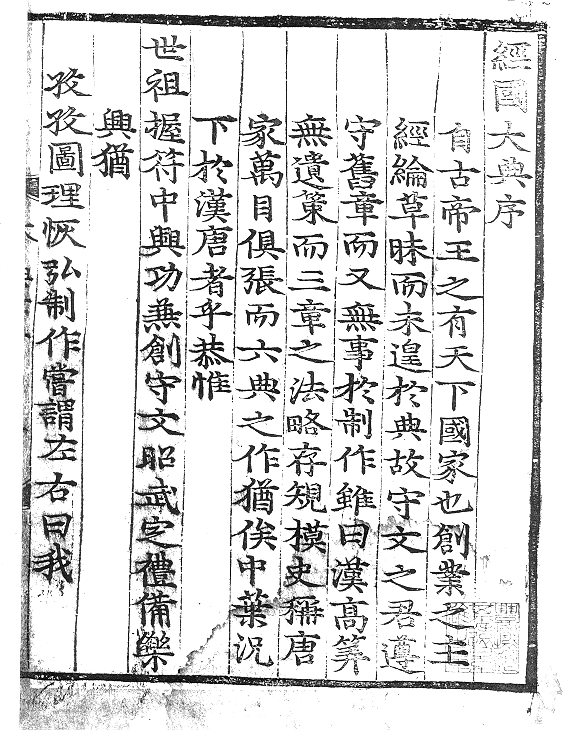 經國大典序
自古帝王之有天下國家也創業之主
經綸草昧而未遑於典故守文之君遵
守舊章而又無事於制作雖曰漢高筭
無遺策而三章之法略存規模史稱唐
家萬目俱張而六典之作猶俟中葉況
下於漢唐者乎恭惟
世祖握符中興功兼創守文昭武定禮備樂
興猶
孜孜圖理恢弘制作嘗謂左右曰我